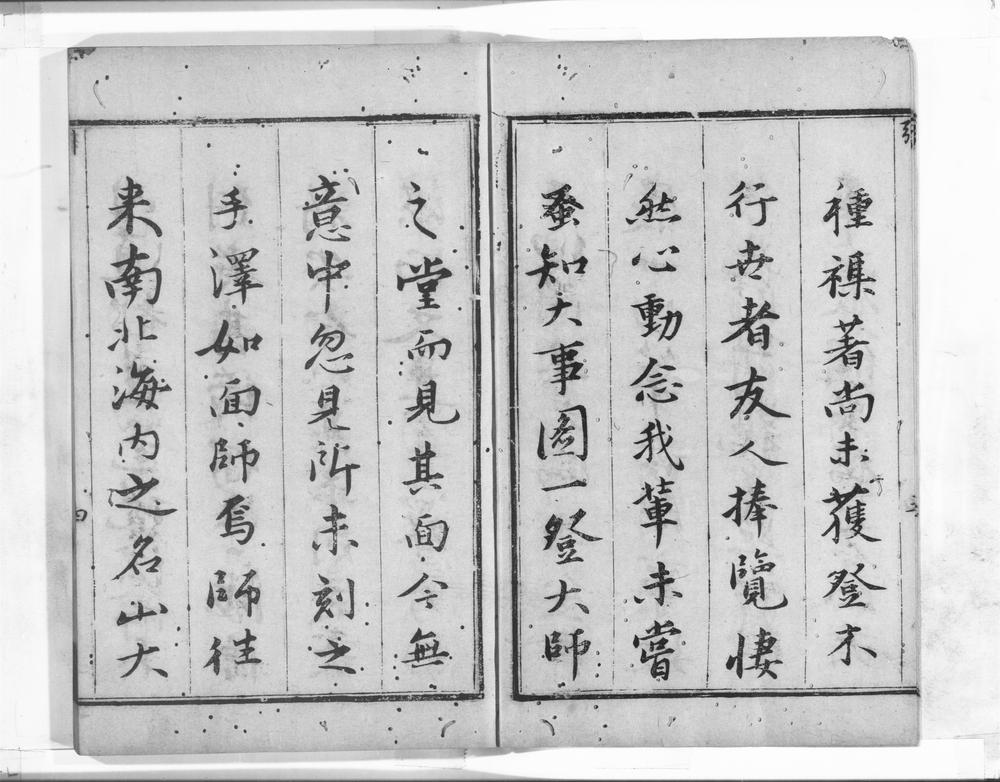 種襍著尚未獲登木
行世者友人捧覽悽
然心動念我輩未嘗
蚤知大事圖一登大師
之堂而見其面今無
意中忽見所未刻之
手澤如面師焉師往
来南北海内之名山大